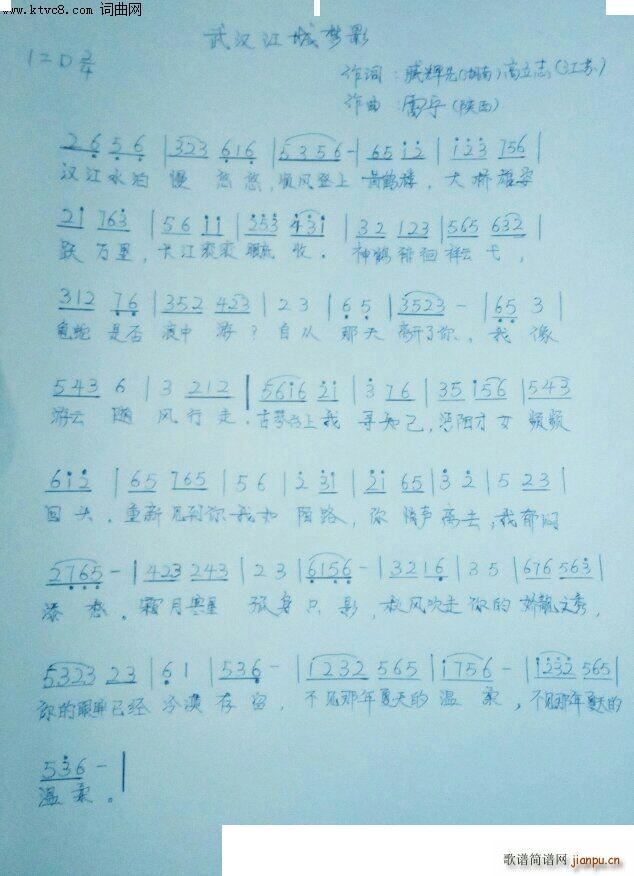 www.ktvc8.com 词曲网
武汉江城梦影
1=D 2/4
作词：臧辉先(湖南)高立志(江苏)
作曲：雷宇(陕西)
2 6 5 6 | 323 616 | 5356- | 65 12 | 123 756 |
汉江水泊慢悠悠，顺风登上黄鹤楼，大桥雄姿
21 763 | 56 11 | 253 431 | 32 123 | 565 632 |
跃万里，长江滚滚 收。神鹤徘徊祥云弋，
312 76 | 352 423 | 2 3 | 6 5 | 3523 - | 65 3 |
龟蛇是否浪中游？自从那天离开了你，我像
543 6 | 3 212 | 5616 21 | 3 76 | 35 156 | 543
游云随风行走，古琴台上我寻知己，汉阳才女频频
612 | 65 765 | 5 6 | 2 31 | 21 65 | 3 2 | 5 23 |
回头。重新见到你我如陌路，你悄声离去，我郁闷
2765 - | 423 243 | 2 3 | 6156 - | 3216 | 3 5 | 676 563 |
添愁。霜月寒星孤身只影，秋风吹走你的娇靓文秀，
5323 23 | 6 1 | 536 - | 1232 565 | 1756 - | 1232 565 |
你的眼眸已经冷漠存留，不见那年夏天的温柔，不见那年夏天的
536 - |
温柔。
歌谱简谱网
jianpu.cn